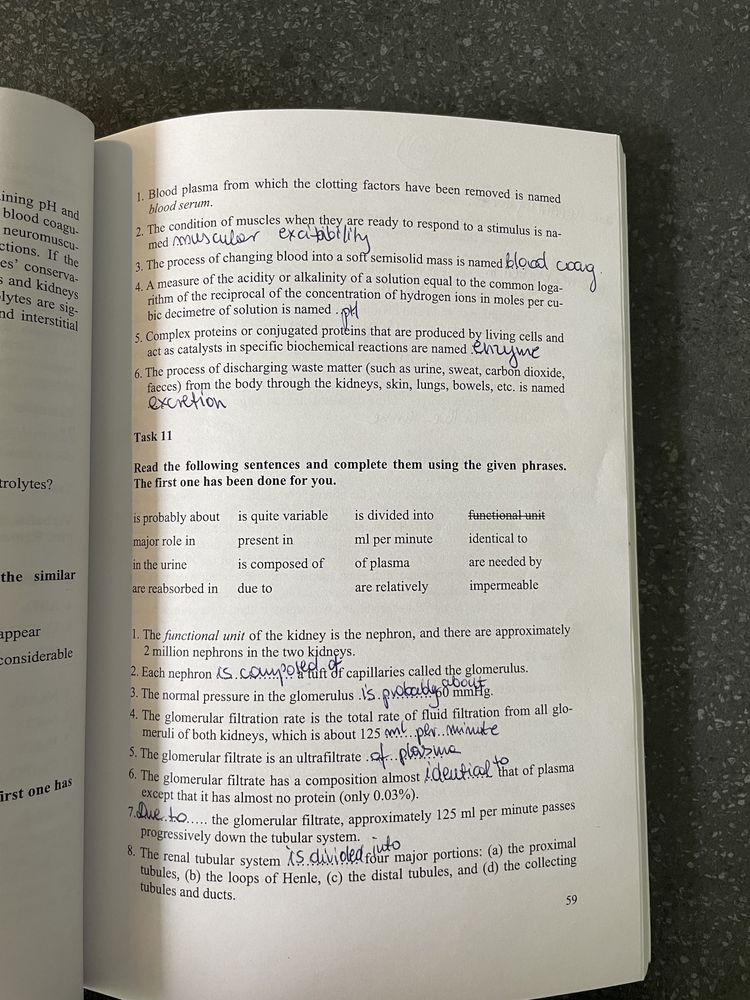 ining pH and
blood coagu-
neuromuscu-
ctions. If the
es' conserva-
s and kidneys
lytes are sig-
nd interstitial
trolytes?
the similar
appear
considerable
irst one has
1. Blood plasma from which the clotting factors have been removed is named
blood serum.
2. The condition of muscles when they are ready to respond to a stimulus is na-
med muscular excitability
3. The process of changing blood into a soft semisolid mass is named blood coag.
4. A measure of the acidity or alkalinity of a solution equal to the common loga-
rithm of the reciprocal of the concentration of hydrogen ions in moles per cu-
bic decimetre of solution is named .pH
5. Complex proteins or conjugated proteins that are produced by living cells and
act as catalysts in specific biochemical reactions are named enzyme
6. The process of discharging waste matter (such as urine, sweat, carbon dioxide,
faeces) from the body through the kidneys, skin, lungs, bowels, etc. is named
excretion
Task 11
Read the following sentences and complete them using the given phrases.
The first one has been done for you.
is probably about is quite variable is divided into functional unit
major role in present in ml per minute identical to
in the urine is composed of of plasma are needed by
are reabsorbed in due to are relatively impermeable
1. The functional unit of the kidney is the nephron, and there are approximately
2 million nephrons in the two kidneys.
2. Each nephron is composed of a tuft of capillaries called the glomerulus.
3. The normal pressure in the glomerulus is probably about 0 mmHg.
4. The glomerular filtration rate is the total rate of fluid filtration from all glo-
meruli of both kidneys, which is about 125 ml per minute
5. The glomerular filtrate is an ultrafiltrate of plasma
6. The glomerular filtrate has a composition almost identical to that of plasma
except that it has almost no protein (only 0.03%).
7. Due to ..... the glomerular filtrate, approximately 125 ml per minute passes
progressively down the tubular system.
8. The renal tubular system is divided into four major portions: (a) the proximal
tubules, (b) the loops of Henle, (c) the distal tubules, and (d) the collecting
tubules and ducts.
59